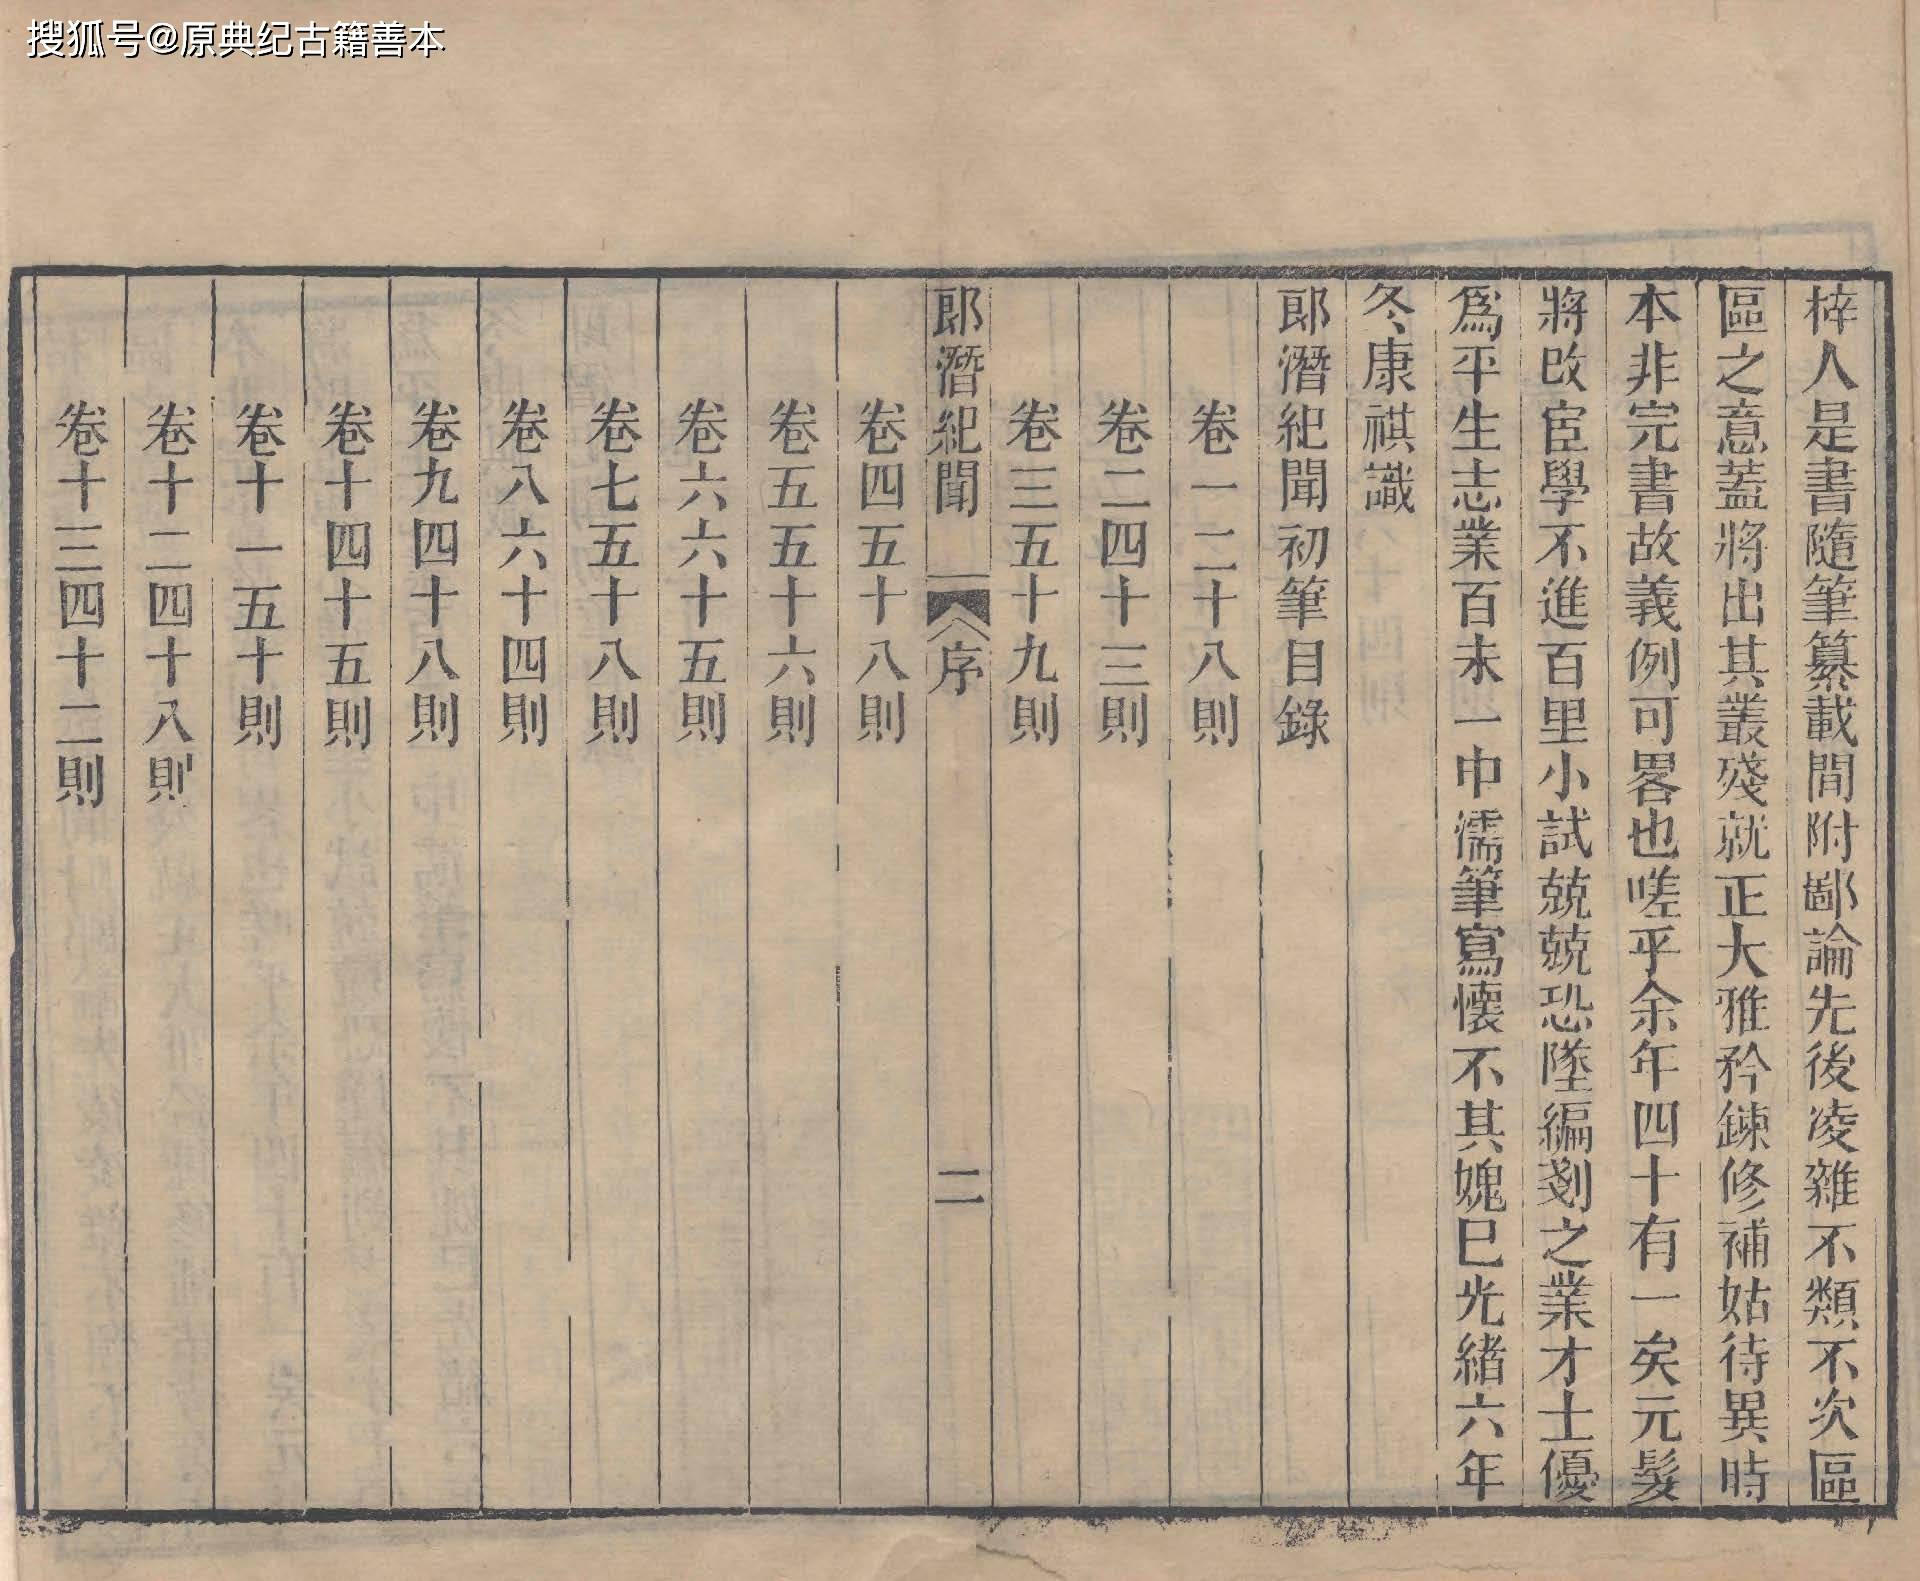 搜狐号@原典纪古籍善本
梓人是書隨筆纂載間附鄙論先後凌雜不類不次區
區之意蓋將出其叢殘就正大雅矜鍊修補姑待異時
本非完書故義例可畧也嗟乎余年四十有一矣元髮
將改宦學不進百里小試兢兢恐墜編剗之業才士優
爲平生志業百未一巾濡筆寫懷不其媿巳光緒六年
冬康祺識
郎潛紀聞初筆目錄
卷一二十八則
卷二四十三則
卷三五十九則
郎潛紀聞 序 二
卷四五十八則
卷五五十六則
卷六六十五則
卷七五十八則
卷八六十四則
卷九四十八則
卷十四十五則
卷十一五十則
卷十二四十八則
卷十三四十二則